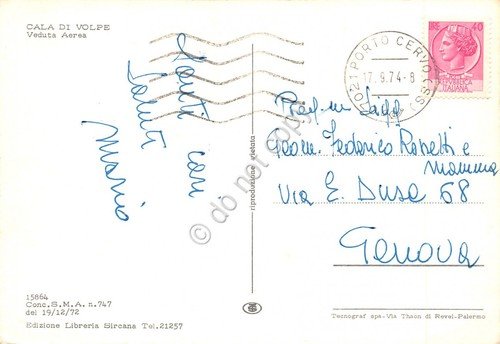 CALA DI VOLPE
Veduta Aerea
Tanti cari
saluti
Mario
riproduzione vietata
15864
Conc. S.M.A. n.747
del 19/12/72
Edizione Libreria Sircana Tel.21257
40
ITALIANA
07021 PORTO CERVO (SS)
17.8.74-8
Geom. Federico e
mamma
Via E. Duse 68
Genova
Tecnograf spa-Via Thaon di Revel-Palermo
© db net copy